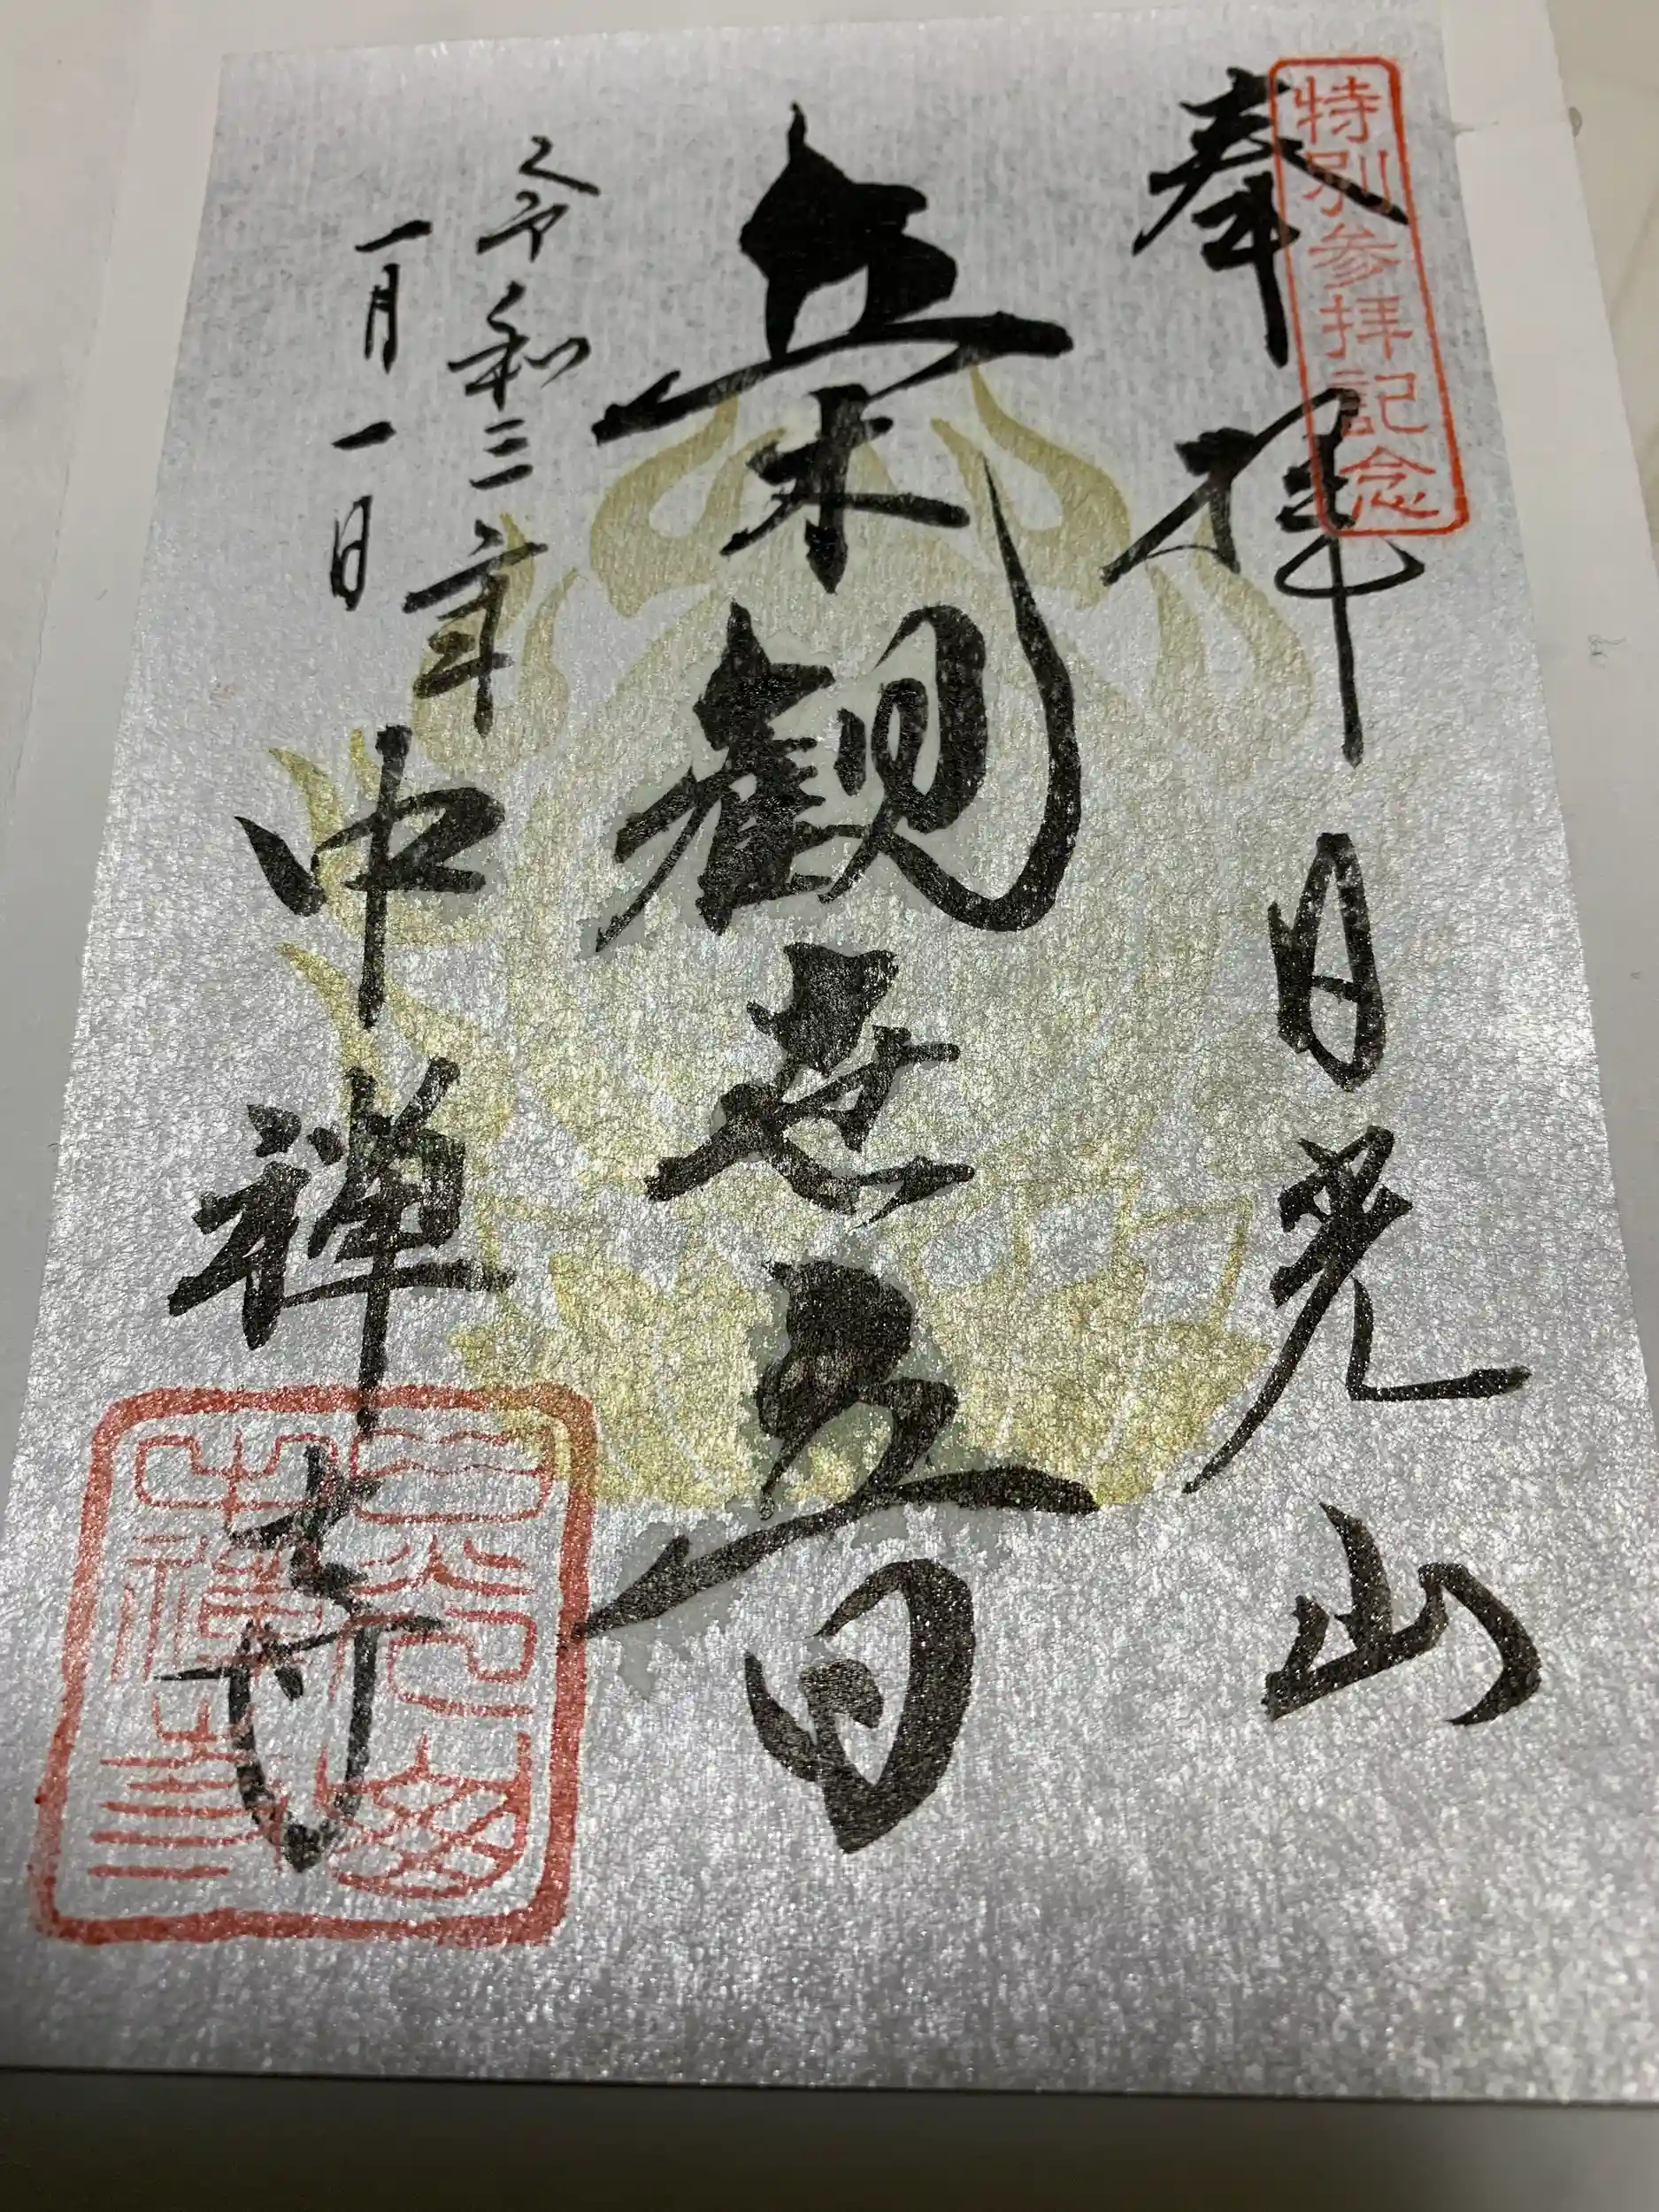 特別参拝記念
奉拝
日光山
立木観世音
令和三年
一月一日
中禅寺
日光山
中禅寺